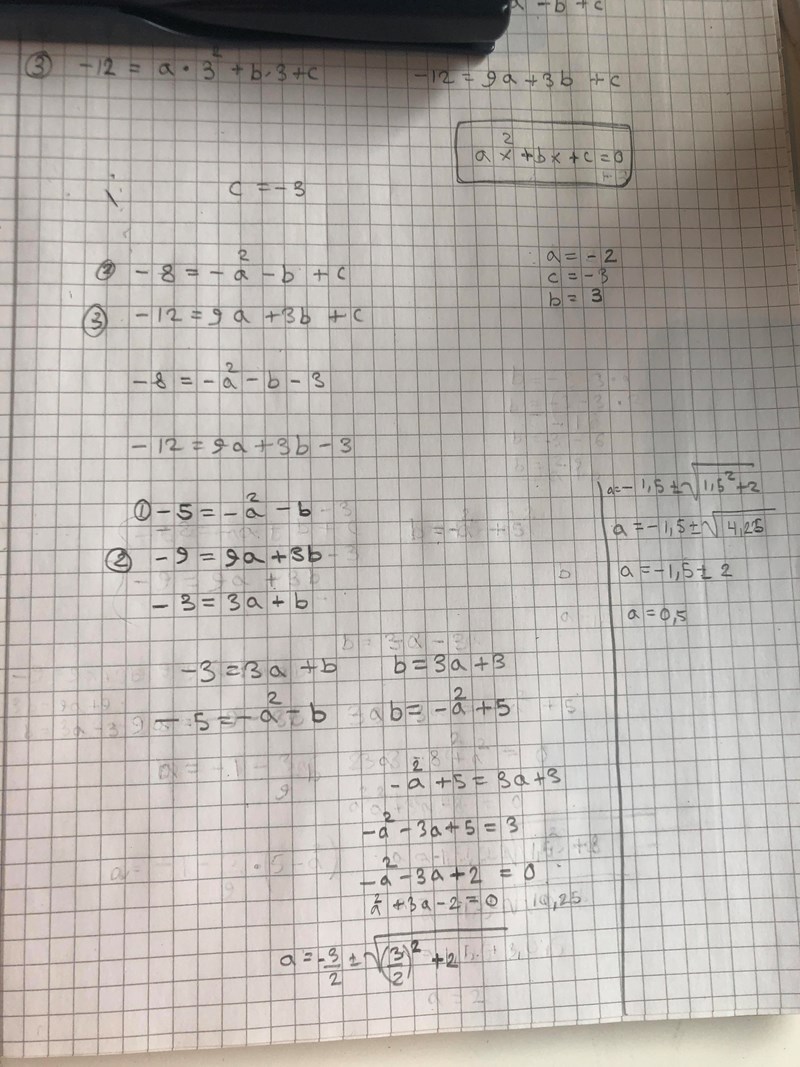 a - b + c
③ -12 = a · 3² + b·3 + c
-12 = 9a + 3b + c
ax² + bx + c = 0
c = -3
② -8 = -a² - b + c
a = -2
c = -3
b = 3
③ -12 = 9a + 3b + c
-8 = -a² - b - 3
-12 = 9a + 3b - 3
① -5 = -a² - b
② -9 = 9a + 3b
-3 = 3a + b
-3 = 3a + b
b = 3a + 3
-5 = -a² - b
b = -a² + 5
-a² + 5 = 3a + 3
-a² - 3a + 5 = 3
-a² - 3a + 2 = 0
a² + 3a - 2 = 0
a = -3/2 ± √((3/2)² + 2)
a = -1,5 ± √(1,5² + 2)
a = -1,5 ± √(4,25)
a = -1,5 ± 2
a = 0,5